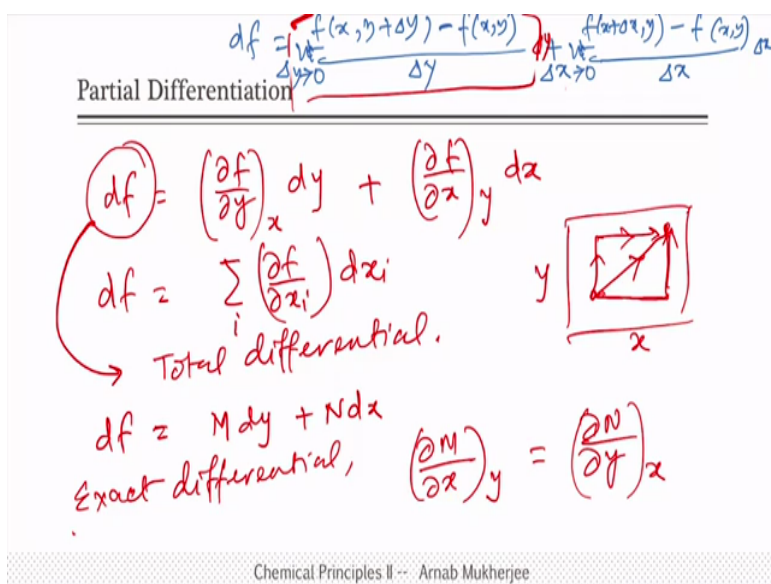 df = Lt Δy→0 f(x,y+Δy) - f(x,y) / Δy dy + Lt Δx→0 f(x+Δx,y) - f(x,y) / Δx Δx
Partial Differentiation
df = (∂f/∂y)x dy + (∂f/∂x)y dx
df = Σi (∂f/∂xi) dxi
y
x
Total differential.
df = M dy + N dx
Exact differential, (∂M/∂x)y = (∂N/∂y)x
Chemical Principles II -- Arnab Mukherjee